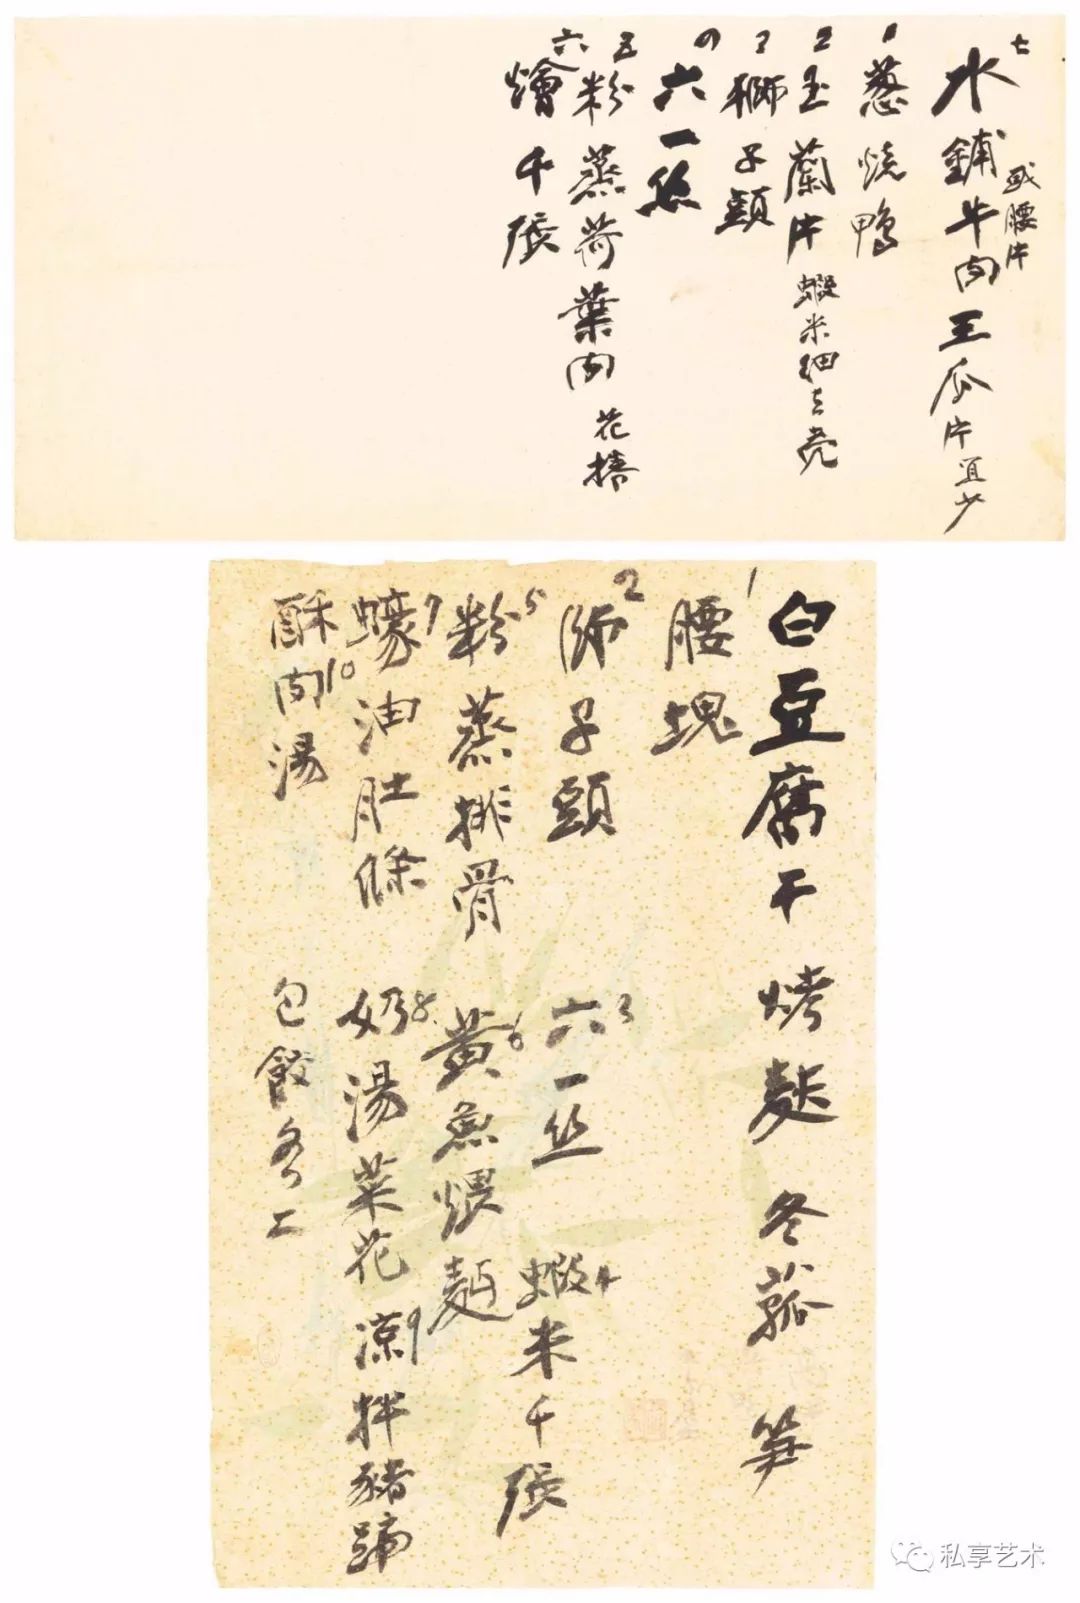 七
水鋪牛肉王瓜片宜少
或腰片
1
葱燒鴨
2
玉蘭片 蝦米細去壳
3
獅子頭
の
六一絲
五
粉蒸荷葉肉 花椿
六
燴千張
白豆腐干 烤麩 冬菰 笋
1
腰塊
2
獅子頭 六一丝
3
4
蝦米千張
5
粉蒸排骨
6
黄魚煨麵
7
蠔油肚條
8
奶湯菜花
9
涼拌豬蹄
10
酥肉湯
包餃
私享艺术